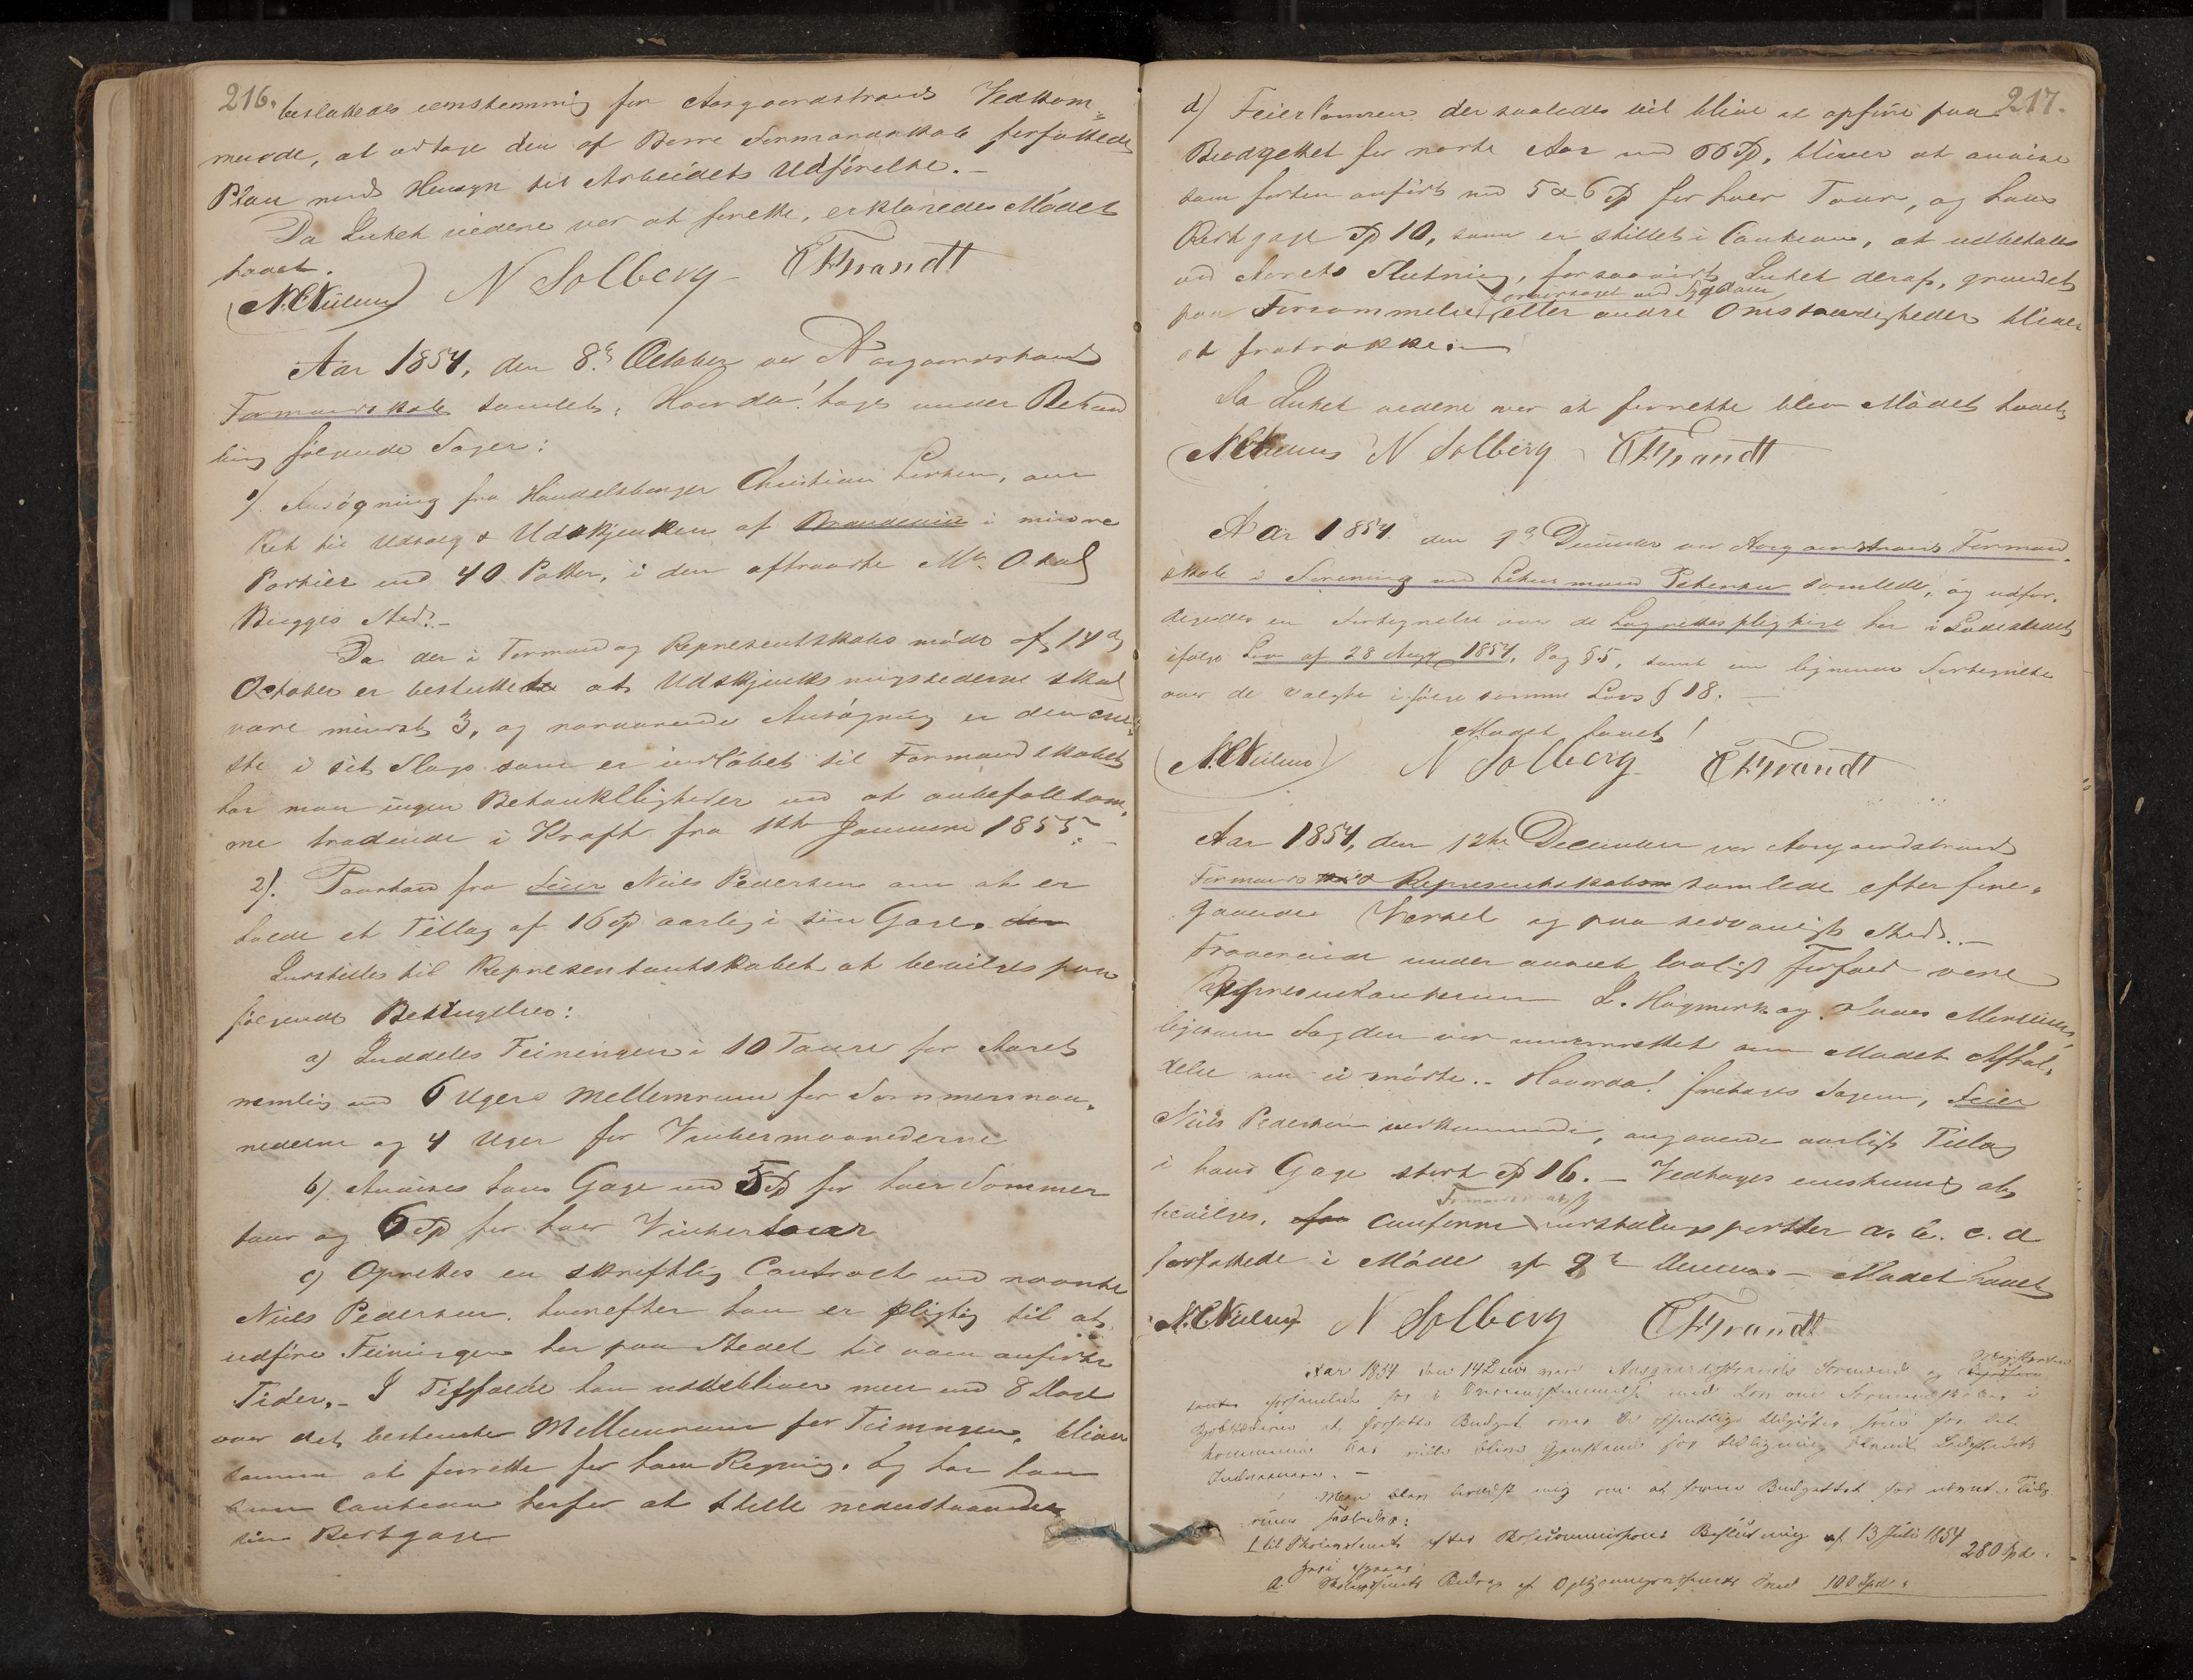 216.
besluttedes eenstemmig for Aasgaardstrands Vedkom=
mende, at vedtage den af Borre Formandskab forfattede
Plan med Hensyn til Arbeidets Udførelse. -
Da Intet videre var at forrette, erklæredes Mødet
hævet.
N. C. Nielsen N Solberg C F Brandt
Aar 1854, den 8de October var Aasgaardstrands
Formandskab samlet. Hvorda! toges under Behand
ling følgende Sager:
1/. Ansøgning fra Handelsborger Christian Larsen, om
Ret til Udsalg & Udskjenken af Brændeviin i mindre
Partier end 40 Potter, i den aftraadte Mr. O.
Bugges Sted. -
Da der i Formand og Representskabs møde af 14de
October er besluttet at Udskjenkningsstederne skal
være mindst 3, og nærværende Ansøgning er den ene=
ste i sit Slags som er indløbet til Formandskabet
har man ingen Betænkeligheder ved at anbefale sam,
me trædende i Kraft fra 1ste Januar 1855. -
2/. Paastand fra Feier Niels Pedersen om at er
holde et Tillæg af 16 Sp aarlig i sin Gage. den
Indstilles til Representantskabet at bevilges paa
følgende Betingelser:
a) Inddeles Feiningen i 10 Toure for Aaret
nemlig med 6 Ugers Mellemrum for Sommermaa,
nederne og 4 Uger for Vintermaanederne
b). Anvises hans Gage med 5 Sp for hver Sommer
tour og 6 Sp for hver Vintertour
c) Oprettes en skriftlig Contract med nævnte
Niels Pedersen, hvorefter han er pligtig til at
udføre Feiningen her paa Stedet til ovenanførte
Tider. - I Tilfælde han udebliver mere end 8 Dage
over det bestemte Mellemrum for Feiningen, bliver
samme at forrette for hans Regning. Og har han
som Caution herfor at stille nedenstaaende
sin Restgage
217.
d) Feierlønnen der saaledes vil blive at opføre paa
Budgettet for næste Aar med 66 Sp, bliver at anvise
som forhen anført med 5 & 6 Sp for hver Tour, og hans
Restgage Sp 10, som er stillet i Caution, at udbetales
ved Aarets Slutning, forsaavidt Intet deraf, grundet
foraarsaget ved Sygdom
paa Forsømmelse eller andre Omstændigheder bliver
at fratrække. -
Da Intet videre var at forrette blev Mødet hævet
N. C. Nielsen N Solberg C F Brandt
Aar 1854 den 9de December var Aasgaardstrands Formand,
skab i Forening med Lehnsmand Petersen samlede, og udfær,
digedes en Fortegnelse over de Lagrettespligtige her i Ladestedet
ifølge Lov af 28 Augt 1854, Pag §5, samt en lignende Fortegnelse
over de valgte ifølge samme Lovs § 18. -
Mødet hævet!
N. C. Nielsen N Solberg C F Brandt
Aar 1854, den 12te December var Aasgaardstrands
Formand & Representskab samlede efter fore,
gaaende Varsel og paa sedvanligt Sted. -
Fraværende uden anmeldt lovligt Forfald vare
Representanterne L. Hagmark og
ligesom Sagden var underrettet om Mødet
delse men ei mødte. - Hvorda! foretages Sagen, Feier
Niels Pedersen vedkommende, angaaende aarligt Tillæg
i hans Gage stort Sp 16. - Vedtages eenstemmig at
Formandskabets
bevilges, for conforme indstillings poster a. b. c. d
forfattede i Møde af 8de - Mødet hævet
N. C. Nielsen N Solberg C F Brandt
Aar 1854 den 14 var Aasgaardstrands Formænd og
samlede for i Overensstemmelse med Lov om Formandskaber i
Kjøbstæderne at forfatte Budget over de offentlige Udgifter som for det
kommende Aar ville blive Gjenstand for Udligning blandt Ladestedets
Indvaanere. -
Man blev da enig om at Budgettet for nævnte Tids
rum saaledes:
1 til Skolevæsenet efter Skolecommissionens Beslutning af 13 Juli 1854
280 Spd.
a. Skolevæsenets Bidrag af Oplysningsvæsenets Fond 100 Spd.